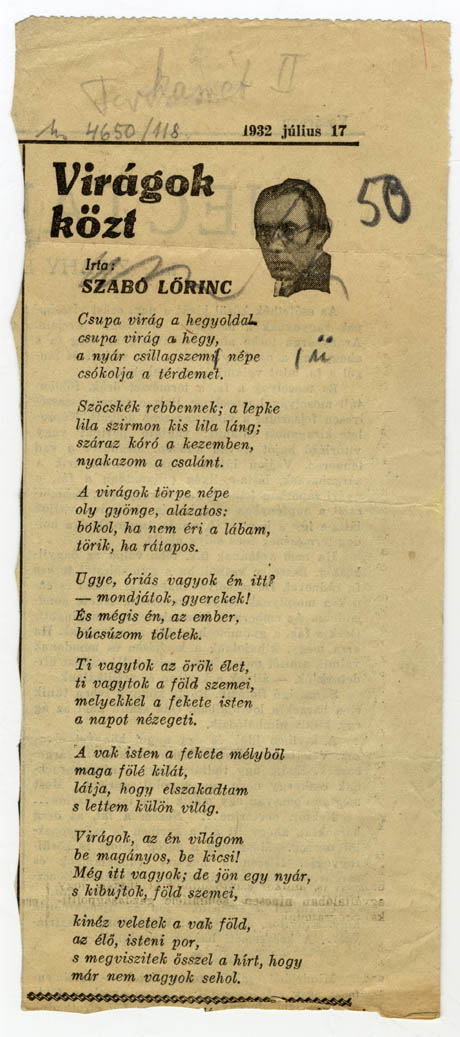 II
4650/118.
1932 július 17
Virágok
közt
50
Irta:
SZABÓ LŐRINC
Csupa virág a hegyoldal
csupa virág a hegy,
a nyár csillagszemű népe
csókolja a térdemet.
Szöcskék rebbennek; a lepke
lila szirmon kis lila láng;
száraz kóró a kezemben,
nyakazom a csalánt.
A virágok törpe népe
oly gyönge, alázatos:
bókol, ha nem éri a lábam,
törik, ha rátapos.
Ugye, óriás vagyok én itt?
— mondjátok, gyerekek!
És mégis én, az ember,
búcsúzom tőletek.
Ti vagytok az örök élet,
ti vagytok a föld szemei,
melyekkel a fekete isten
a napot nézegeti.
A vak isten a fekete mélyből
maga fölé kilát,
látja, hogy elszakadtam
s lettem külön világ.
Virágok, az én világom
be magányos, be kicsi!
Még itt vagyok; de jön egy nyár,
s kibujtok, föld szemei,
kinéz veletek a vak föld,
az élő, isteni por,
s megviszitek ősszel a hírt, hogy
már nem vagyok sehol.